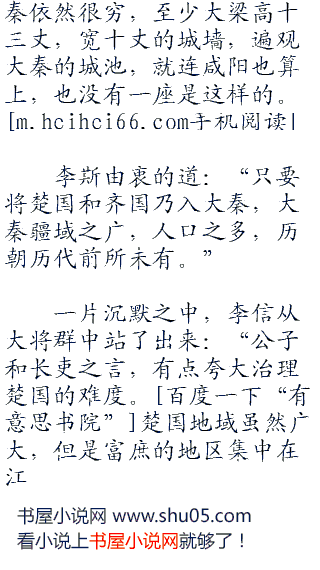 秦依然很穷，至少大梁高十
三丈，宽十丈的城墙，遍观
大秦的城池，就连咸阳也算
上，也没有一座是这样的。
[m.hcihci66.com手机阅读|
李斯由衷的道：“只要
将楚国和齐国乃入大秦，大
秦疆域之广，人口之多，历
朝历代前所未有。”
一片沉默之中，李信从
大将群中站了出来：“公子
和长吏之言，有点夸大治理
楚国的难度。[百度一下“有
意思书院”]楚国地域虽然广
大，但是富庶的地区集中在
江
书屋小说网 www.shu05.com
看小说上书屋小说网就够了！